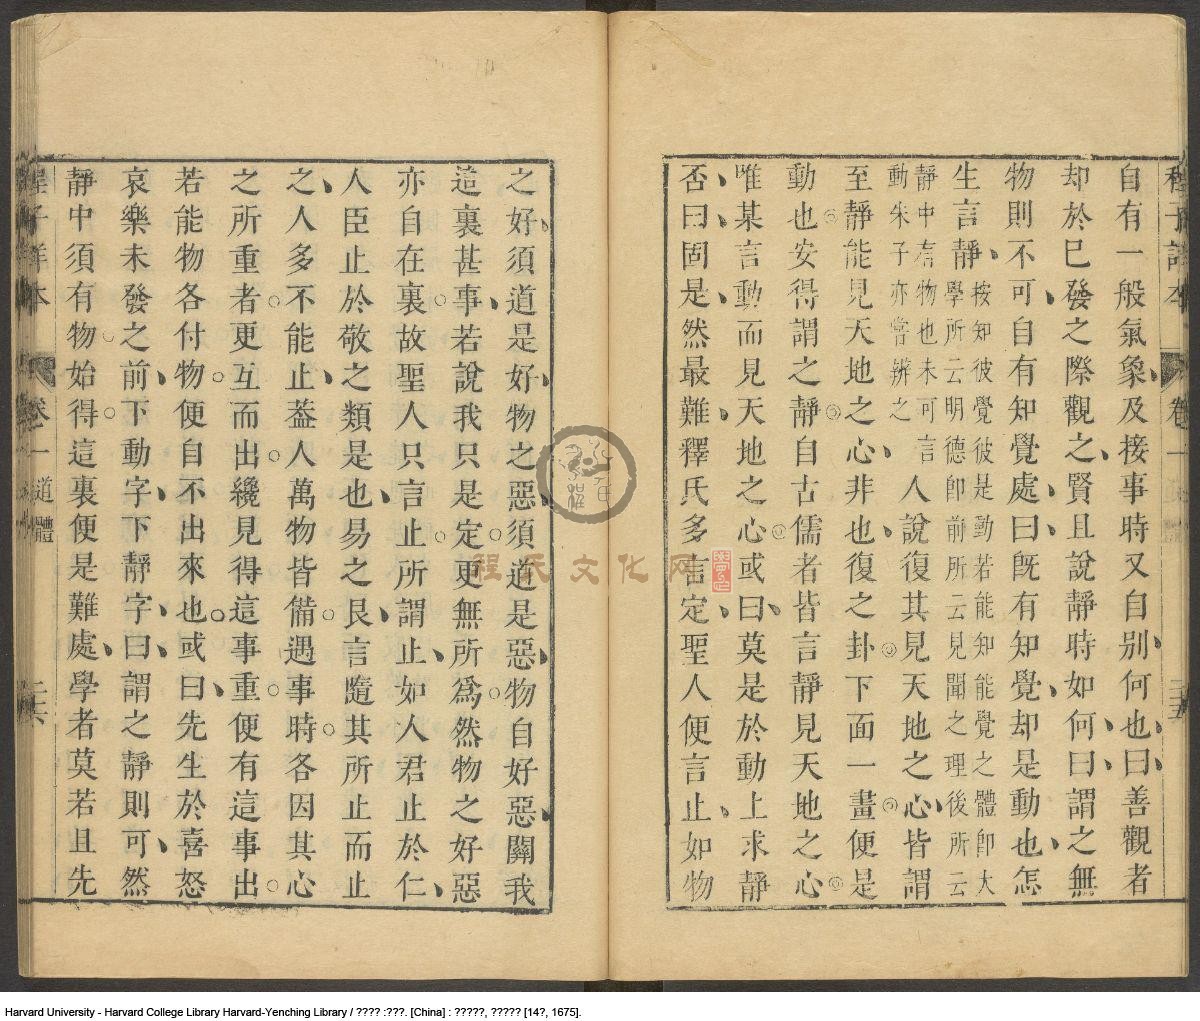 自有一般氣象及接事時又自别何也曰善觀者
却於巳發之際觀之賢且說靜時如何曰謂之無
物則不可自有知覺處曰旣有知覺却是動也怎
生言靜
按知彼覺彼是動若能知能覺之體卽大
學所云明德卽前所云見聞之理後所云
靜中有物也未可言
動朱子亦嘗辨之
人說復其見天地之心皆謂
至靜能見天地之心非也復之卦下面一畫便是
動也安得謂之靜自古儒者皆言靜見天地之心
唯某言動而見天地之心或曰莫是於動上求靜
否曰固是然最難釋氏多言定聖人便言止如物
之好須道是好物之惡須道是惡物自好惡關我
這裏甚事若說我只是定更無所爲然物之好惡
亦自在裏故聖人只言止所謂止如人君止於仁
人臣止於敬之類是也易之艮言隨其所止而止
之人多不能止葢人萬物皆備遇事時各因其心
之所重者更互而出纔見得這事重便有這事出
若能物各付物便自不出來也或曰先生於喜怒
哀樂未發之前下動字下靜字曰謂之靜則可然
靜中須有物始得這裏便是難處學者莫若且先
卷一 道體 二六
程氏文化网
Harvard University - Harvard College Library Harvard-Yenching Library / ???? :???. [China] : ?????, ????? [14?, 1675].